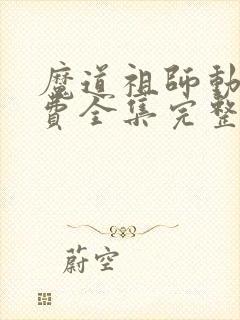 魔道祖師動
費全集完整
蔚空